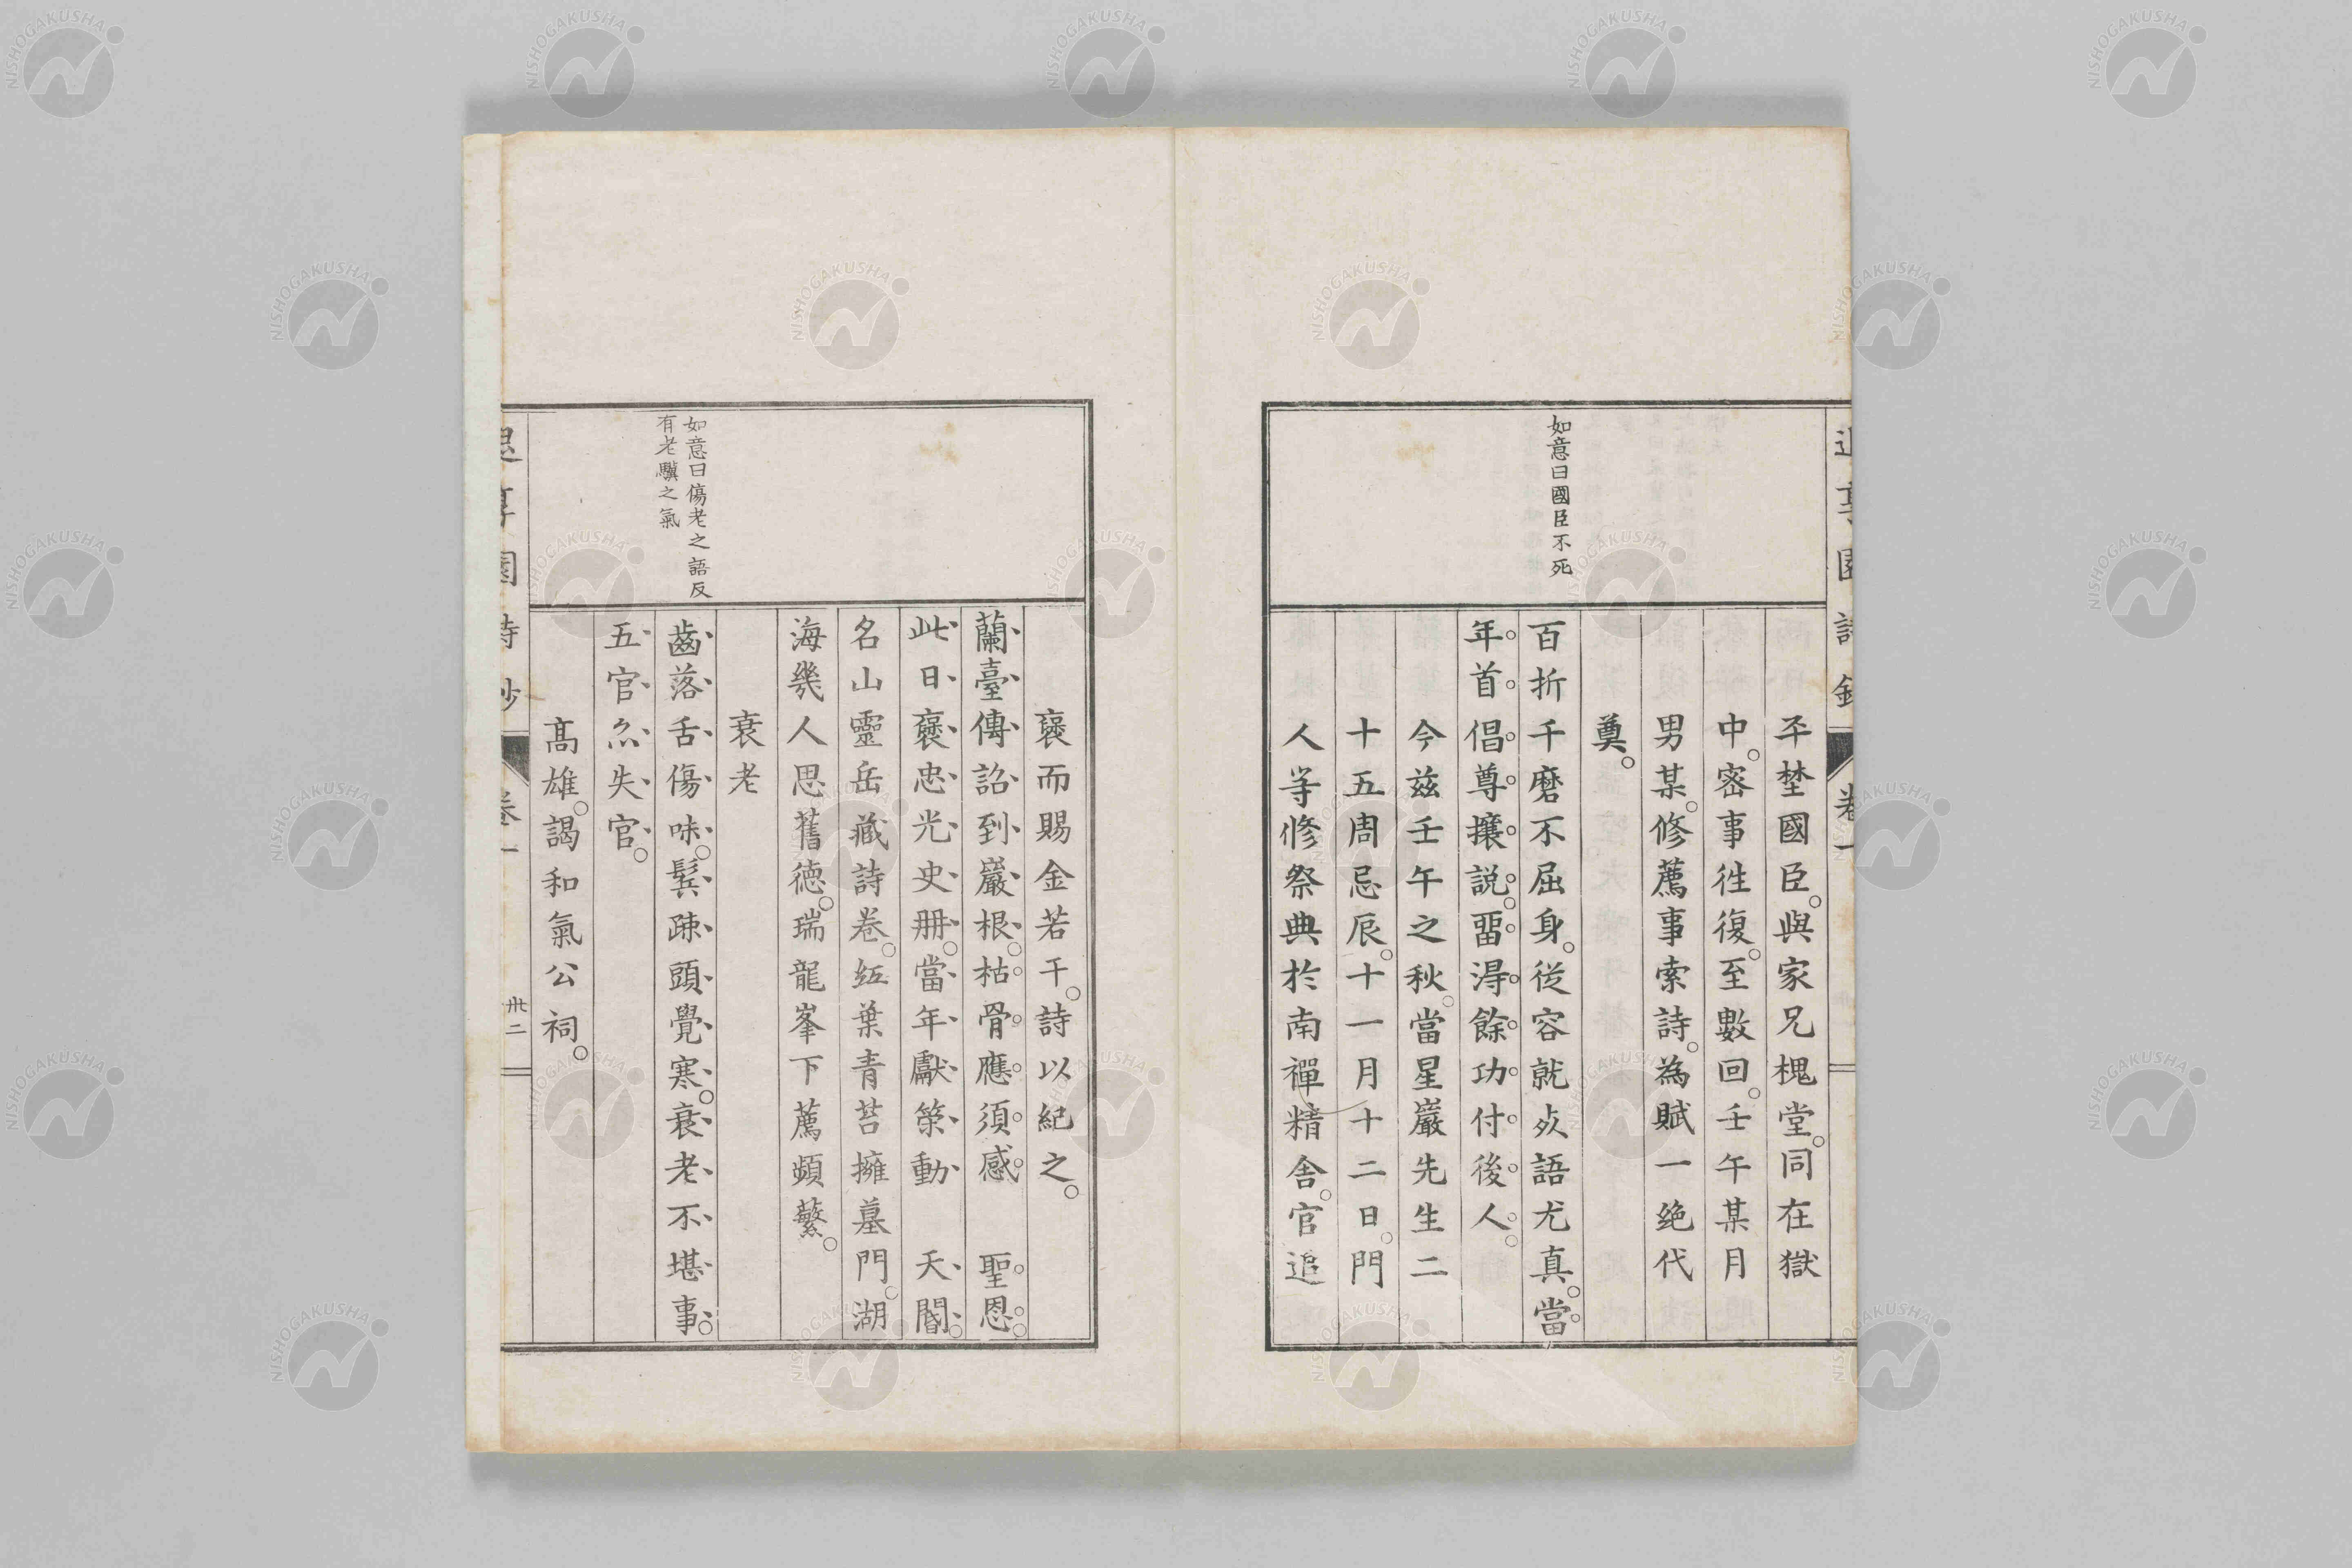 如意曰國臣不死
平埜國臣。與家兄槐堂。同在獄
中。密事往復。至數回。壬午某月
男某。修薦事索詩。為賦一絶代
奠。
百折千磨不屈身。從容就死語尤真。當
年首倡尊攘説。畱得餘功付後人。
今茲壬午之秋。當星巖先生二
十五周忌辰。十一月十二日。門
人等修祭典於南禪精舎。官追
如意曰傷老之語反
有老驥之氣
褒而賜金若干。詩以紀之。
蘭臺傳詔到巖根。枯骨應須感　聖恩。
此日褒忠光史冊。當年獻策動　天閽。
名山靈岳藏詩卷。紅葉青苔擁墓門。湖
海幾人思舊徳。瑞龍峯下薦蘋蘩。
衰老
齒落舌傷味。鬂疎頭覺寒。衰老不堪事。
五官尒失官。
髙雄。謁和氣公祠。
卷一
卅二
NISHOGAKUSHA